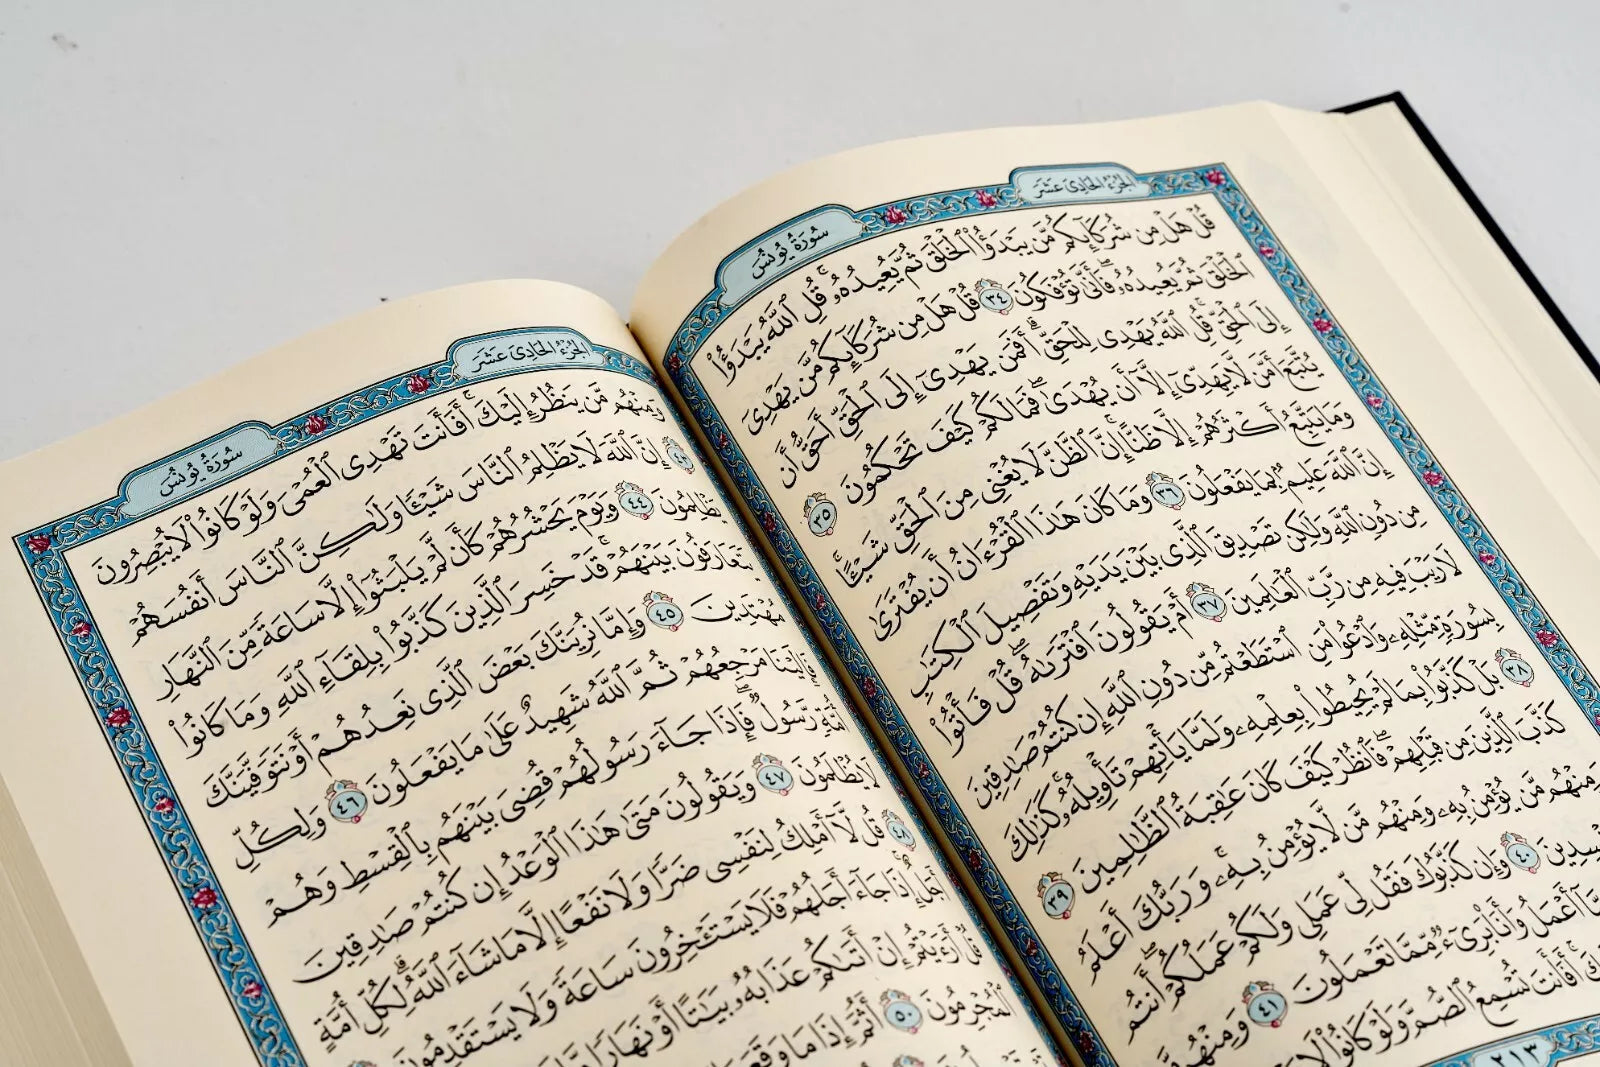 الجزء الحادي عشر
سورة يونس
قُلْ هَلْ مِن شُرَكَآئِكُم مَّن يَبْدَؤُا۟ ٱلْخَلْقَ ثُمَّ يُعِيدُهُۥ ۚ قُلِ ٱللَّهُ يَبْدَؤُا۟
ٱلْخَلْقَ ثُمَّ يُعِيدُهُۥ ۖ فَأَنَّىٰ تُؤْفَكُونَ ٣٤ قُلْ هَلْ مِن شُرَكَآئِكُم مَّن يَهْدِىٓ
إِلَى ٱلْحَقِّ ۚ قُلِ ٱللَّهُ يَهْدِى لِلْحَقِّ ۗ أَفَمَن يَهْدِىٓ إِلَى ٱلْحَقِّ أَحَقُّ أَن
يُتَّبَعَ أَمَّن لَّا يَهِدِّىٓ إِلَّآ أَن يُهْدَىٰ ۖ فَمَا لَكُمْ كَيْفَ تَحْكُمُونَ ٣٥
وَمَا يَتَّبِعُ أَكْثَرُهُمْ إِلَّا ظَنًّا ۚ إِنَّ ٱلظَّنَّ لَا يُغْنِى مِنَ ٱلْحَقِّ شَيْـًٔا ۚ
إِنَّ ٱللَّهَ عَلِيمٌۢ بِمَا يَفْعَلُونَ ٣٦ وَمَا كَانَ هَٰذَا ٱلْقُرْءَانُ أَن يُفْتَرَىٰ
مِن دُونِ ٱللَّهِ وَلَٰكِن تَصْدِيقَ ٱلَّذِى بَيْنَ يَدَيْهِ وَتَفْصِيلَ ٱلْكِتَٰبِ
لَا رَيْبَ فِيهِ مِن رَّبِّ ٱلْعَٰلَمِينَ ٣٧ أَمْ يَقُولُونَ ٱفْتَرَىٰهُ ۖ قُلْ فَأْتُوا۟
بِسُورَةٍ مِّثْلِهِۦ وَٱدْعُوا۟ مَنِ ٱسْتَطَعْتُم مِّن دُونِ ٱللَّهِ إِن كُنتُمْ صَٰدِقِينَ
٣٨ بَلْ كَذَّبُوا۟ بِمَا لَمْ يُحِيطُوا۟ بِعِلْمِهِۦ وَلَمَّا يَأْتِهِمْ تَأْوِيلُهُۥ ۚ كَذَٰلِكَ
كَذَّبَ ٱلَّذِينَ مِن قَبْلِهِمْ ۖ فَٱنظُرْ كَيْفَ كَانَ عَٰقِبَةُ ٱلظَّٰلِمِينَ ٣٩
وَمِنْهُم مَّن يُؤْمِنُ بِهِۦ وَمِنْهُم مَّن لَّا يُؤْمِنُ بِهِۦ ۚ وَرَبُّكَ أَعْلَمُ
٤٠ وَإِن كَذَّبُوكَ فَقُل لِّى عَمَلِى وَلَكُمْ عَمَلُكُمْ ۖ أَنتُم
أَعْمَلُ وَأَنَا۠ بَرِىٓءٌ مِّمَّا تَعْمَلُونَ ٤١ وَمِنْهُم
أَفَأَنتَ تُسْمِعُ ٱلصُّمَّ وَلَوْ كَانُوا۟ لَا
٢١٣
الجزء الحادي عشر
سورة يونس
وَمِنْهُم مَّن يَنظُرُ إِلَيْكَ ۚ أَفَأَنتَ تَهْدِى ٱلْعُمْىَ وَلَوْ كَانُوا۟ لَا يُبْصِرُونَ
إِنَّ ٱللَّهَ لَا يَظْلِمُ ٱلنَّاسَ شَيْـًٔا وَلَٰكِنَّ ٱلنَّاسَ أَنفُسَهُمْ
يَظْلِمُونَ ٤٤ وَيَوْمَ يَحْشُرُهُمْ كَأَن لَّمْ يَلْبَثُوٓا۟ إِلَّا سَاعَةً مِّنَ ٱلنَّهَارِ
يَتَعَارَفُونَ بَيْنَهُمْ ۚ قَدْ خَسِرَ ٱلَّذِينَ كَذَّبُوا۟ بِلِقَآءِ ٱللَّهِ وَمَا كَانُوا۟
مُهْتَدِينَ ٤٥ وَإِمَّا نُرِيَنَّكَ بَعْضَ ٱلَّذِى نَعِدُهُمْ أَوْ نَتَوَفَّيَنَّكَ
فَإِلَيْنَا مَرْجِعُهُمْ ثُمَّ ٱللَّهُ شَهِيدٌ عَلَىٰ مَا يَفْعَلُونَ ٤٦ وَلِكُلِّ
أُمَّةٍ رَّسُولٌ ۖ فَإِذَا جَآءَ رَسُولُهُمْ قُضِىَ بَيْنَهُم بِٱلْقِسْطِ وَهُمْ
لَا يُظْلَمُونَ ٤٧ وَيَقُولُونَ مَتَىٰ هَٰذَا ٱلْوَعْدُ إِن كُنتُمْ صَٰدِقِينَ
٤٨ قُل لَّآ أَمْلِكُ لِنَفْسِى ضَرًّا وَلَا نَفْعًا إِلَّا مَا شَآءَ ٱللَّهُ ۗ لِكُلِّ أُمَّةٍ
أَجَلٌ ۚ إِذَا جَآءَ أَجَلُهُمْ فَلَا يَسْتَـْٔخِرُونَ سَاعَةً ۖ وَلَا يَسْتَقْدِمُونَ
قُلْ أَرَءَيْتُمْ إِنْ أَتَىٰكُمْ عَذَابُهُۥ بَيَٰتًا أَوْ نَهَارًا
ٱلْمُجْرِمُونَ ٥٠ أَثُمَّ إِذَا مَا وَقَعَ